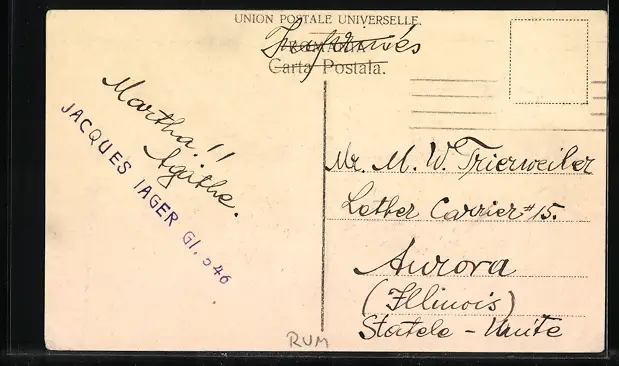 UNION POSTALE UNIVERSELLE.
Imprimés
Carta Postala.
Martha!!
Agathe.
JACQUES IAGER Gl. 546
Mr. M. W. Trierweiler
Letter Carrier #15.
Aurora
(Illinois)
Statele-Unite
RUM